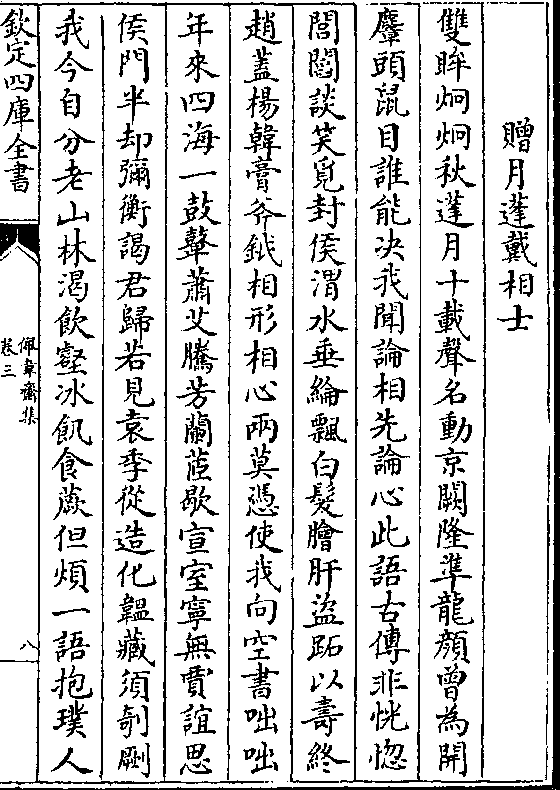 贈月蓬戴相士
雙眸炯炯秋蓬月十載聲名動京闕隆準龍顔曾為開
麞頭鼠目誰能决我聞論相先論心此語古傳非恍惚
閭閻談笑覓封侯渭水垂綸飄白髮膾肝盜跖以壽終
趙蓋楊韓膏斧鉞相形相心兩莫憑使我向空書咄咄
年來四海一鼓鼙蕭艾騰芳蘭茝歇宣室寧無賈誼思
侯門半却彌衡謁君歸若見袁季從造化韞藏須剞劂
我今自分老山林渴飲壑冰飢食蕨但煩一語抱璞人
欽定四庫全書
佩韋齋集
卷三
八